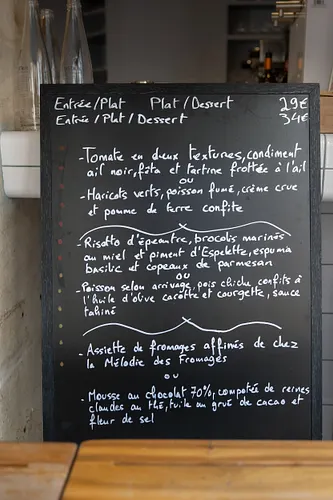 Entrée/Plat Plat/Dessert 29€
Entrée/Plat/Dessert 34€
-Tomate en deux textures, condiment
ail noir, féta et tartine frottée à l'ail
OU
-Haricots verts, poisson fumé, crème crue
et pomme de terre confite
-Risotto d'épeautre, brocolis marinés
au miel et piment d'Espelette, espuma
basilic et copeaux de parmesan
OU
-Poisson selon arrivage, pois chiche confits à
l'huile d'olive carotte et courgette, sauce
tahiné
-Assiette de fromages affinés de chez
la Mélodie des Fromages
OU
-Mousse au chocolat 70%, compotée de reines
claudes au thé, tuile au grué de cacao et
fleur de sel